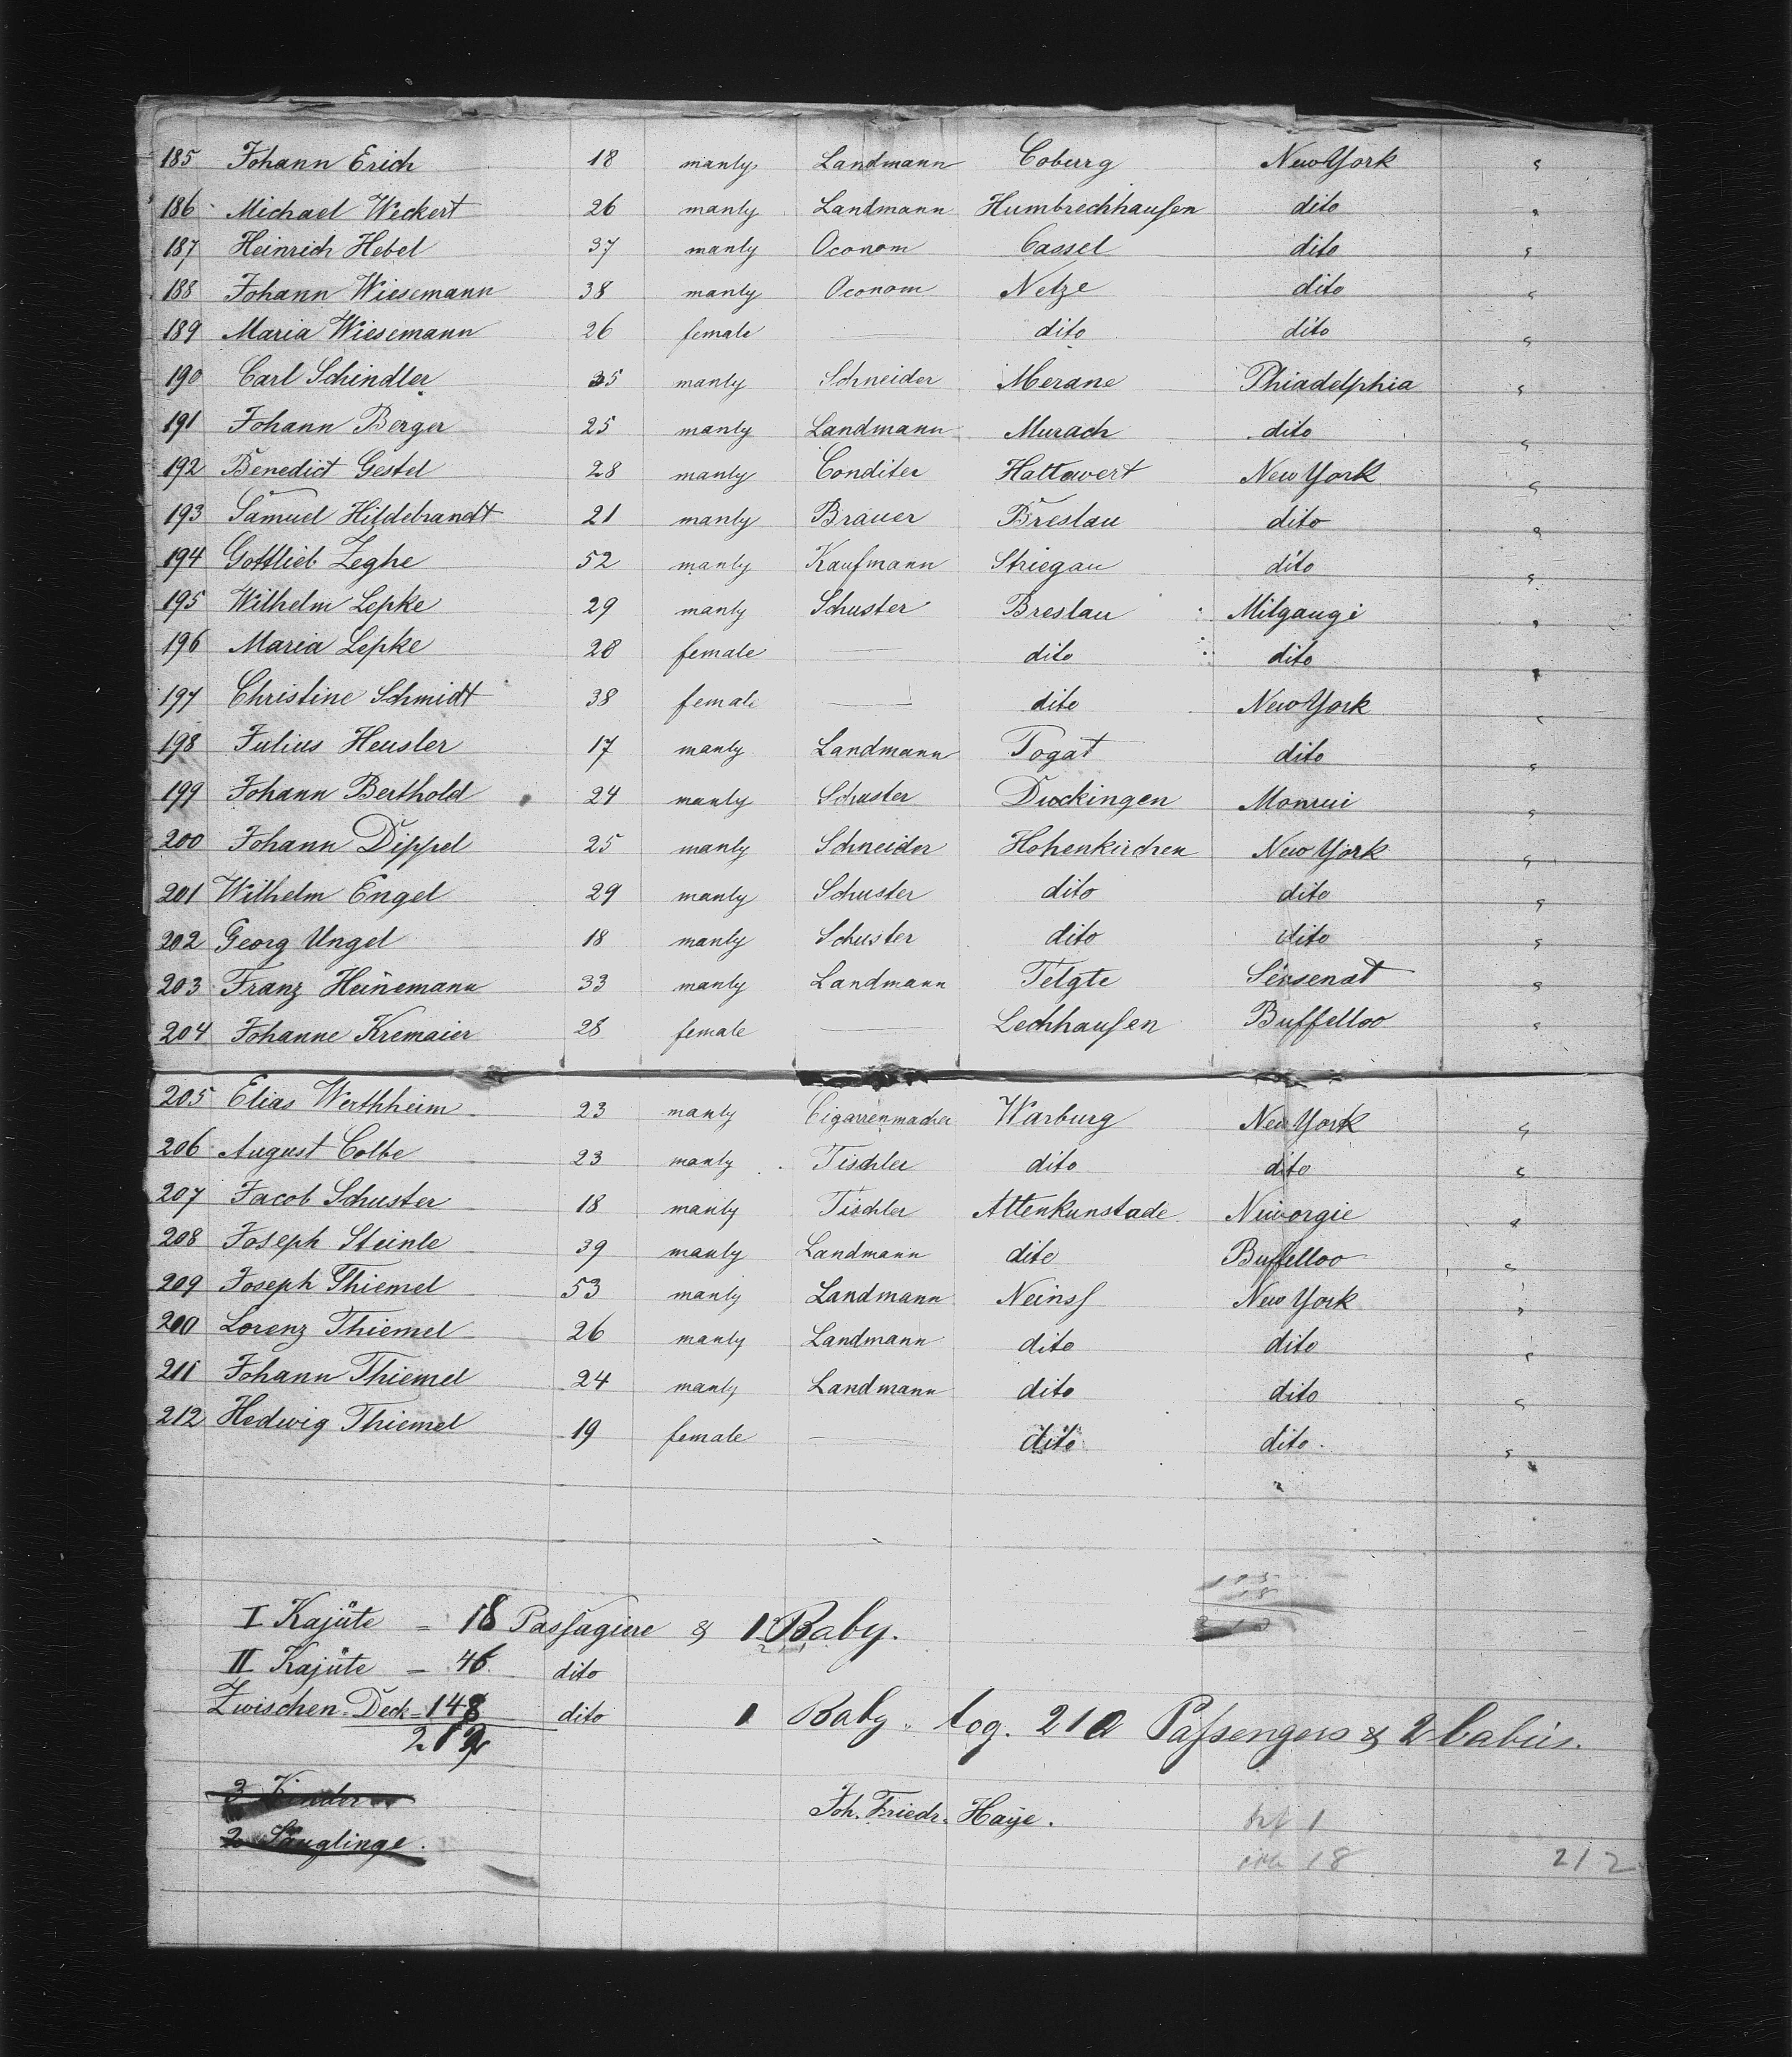 185 Johann Erich 18 manly Landmann Coburg New York "
186 Michael Weckert 26 manly Landmann Humbrechhausen dito "
187 Heinrich Hebel 37 manly Oconom Cassel dito "
188 Johann Wiesemann 38 manly Oconom Netze dito "
189 Maria Wiesemann 26 female — dito dito "
190 Carl Schindler 35 manly Schneider Merane Phiadelphia "
191 Johann Berger 25 manly Landmann Murach dito "
192 Benedict Gestel 28 manly Conditer Hattowert New York "
193 Samuel Hildebrandt 21 manly Brauer Breslau dito "
194 Gottlieb Zeghe 52 manly Kaufmann Striegau dito "
195 Wilhelm Lepke 29 manly Schuster Breslau Milgaugi "
196 Maria Lepke 28 female — dito dito "
197 Christine Schmidt 38 female — dito New York "
198 Julius Heusler 17 manly Landmann Togat dito "
199 Johann Berthold 24 manly Schuster Duckingen Monrui "
200 Johann Dippel 25 manly Schneider Hohenkirchen New York "
201 Wilhelm Engel 29 manly Schuster dito dito "
202 Georg Ungel 18 manly Schuster dito dito "
203 Franz Heinemann 33 manly Landmann Telgte Sensenat "
204 Johanne Kremaier 28 female — Lechhausen Buffelloo "
205 Elias Werthheim 23 manly Cigarrenmacher Warburg New York "
206 August Colbe 23 manly Tischler dito dito "
207 Jacob Schuster 18 manly Tischler Altenkunstade Nuvorgie "
208 Joseph Steinle 39 manly Landmann dito Buffelloo "
209 Joseph Thiemel 53 manly Landmann Neinss New York "
200 Lorenz Thiemel 26 manly Landmann dito dito "
211 Johann Thiemel 24 manly Landmann dito dito "
212 Hedwig Thiemel 19 female — dito dito "
I Kajüte = 18 Passagiere & 1 Baby.
II Kajüte = 46 dito
Zwischen Deck = 148 dito 1 Baby. tog. 212 Passengers & 2 babies.
212
3 Kinder
Joh. Friedr. Haye.
2 Säuglinge.
1
18 212